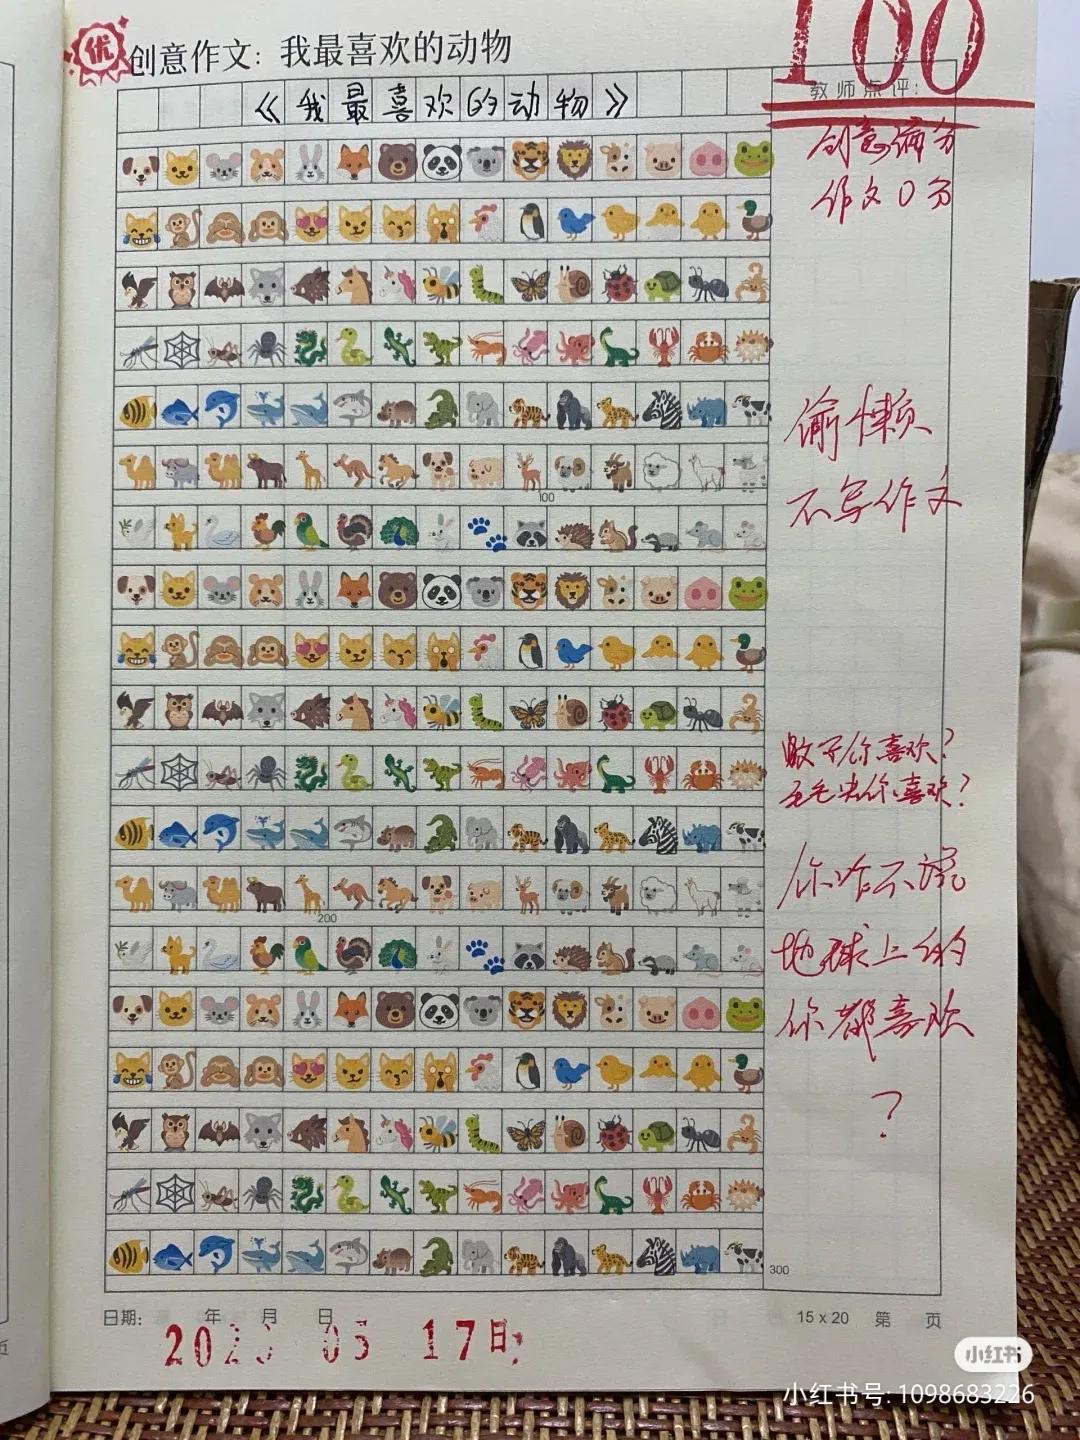 优
创意作文：我最喜欢的动物
100
教师点评：
《我最喜欢的动物》
创意满分
作文0分
偷懒
不写作文
100
蚊子你喜欢？
毛毛虫你喜欢？
你咋不说
地球上的
你都喜欢
？
200
300
日期： 年 月 日
2023 05 17日
15 x 20 第 页
小红书
小红书号: 1098683226